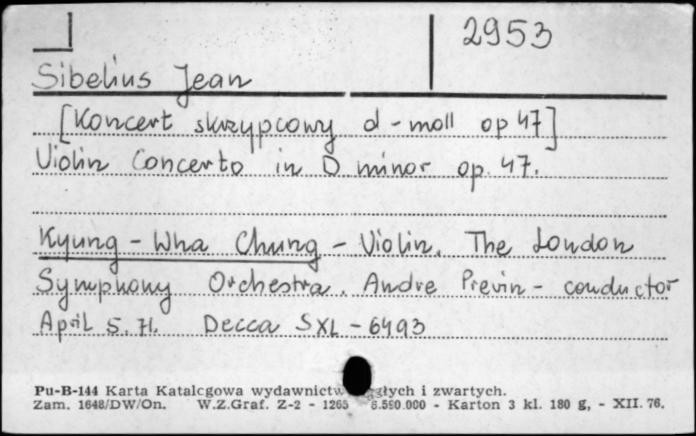 2953
Sibelius Jean
[Koncert skrzypcowy d-moll op 47]
Violin Concerto in D minor op. 47.
Kyung-Wha Chung - Violin. The London
Symphony Orchestra. Andre Previn - conductor
April 5.71. Decca SXL-6493
Pu-B-144 Karta Katalogowa wydawnictw ciągłych i zwartych.
Zam. 1648/DW/On. W.Z.Graf. Z-2 - 1265 6.590.000 - Karton 3 kl. 180 g, - XII. 76.